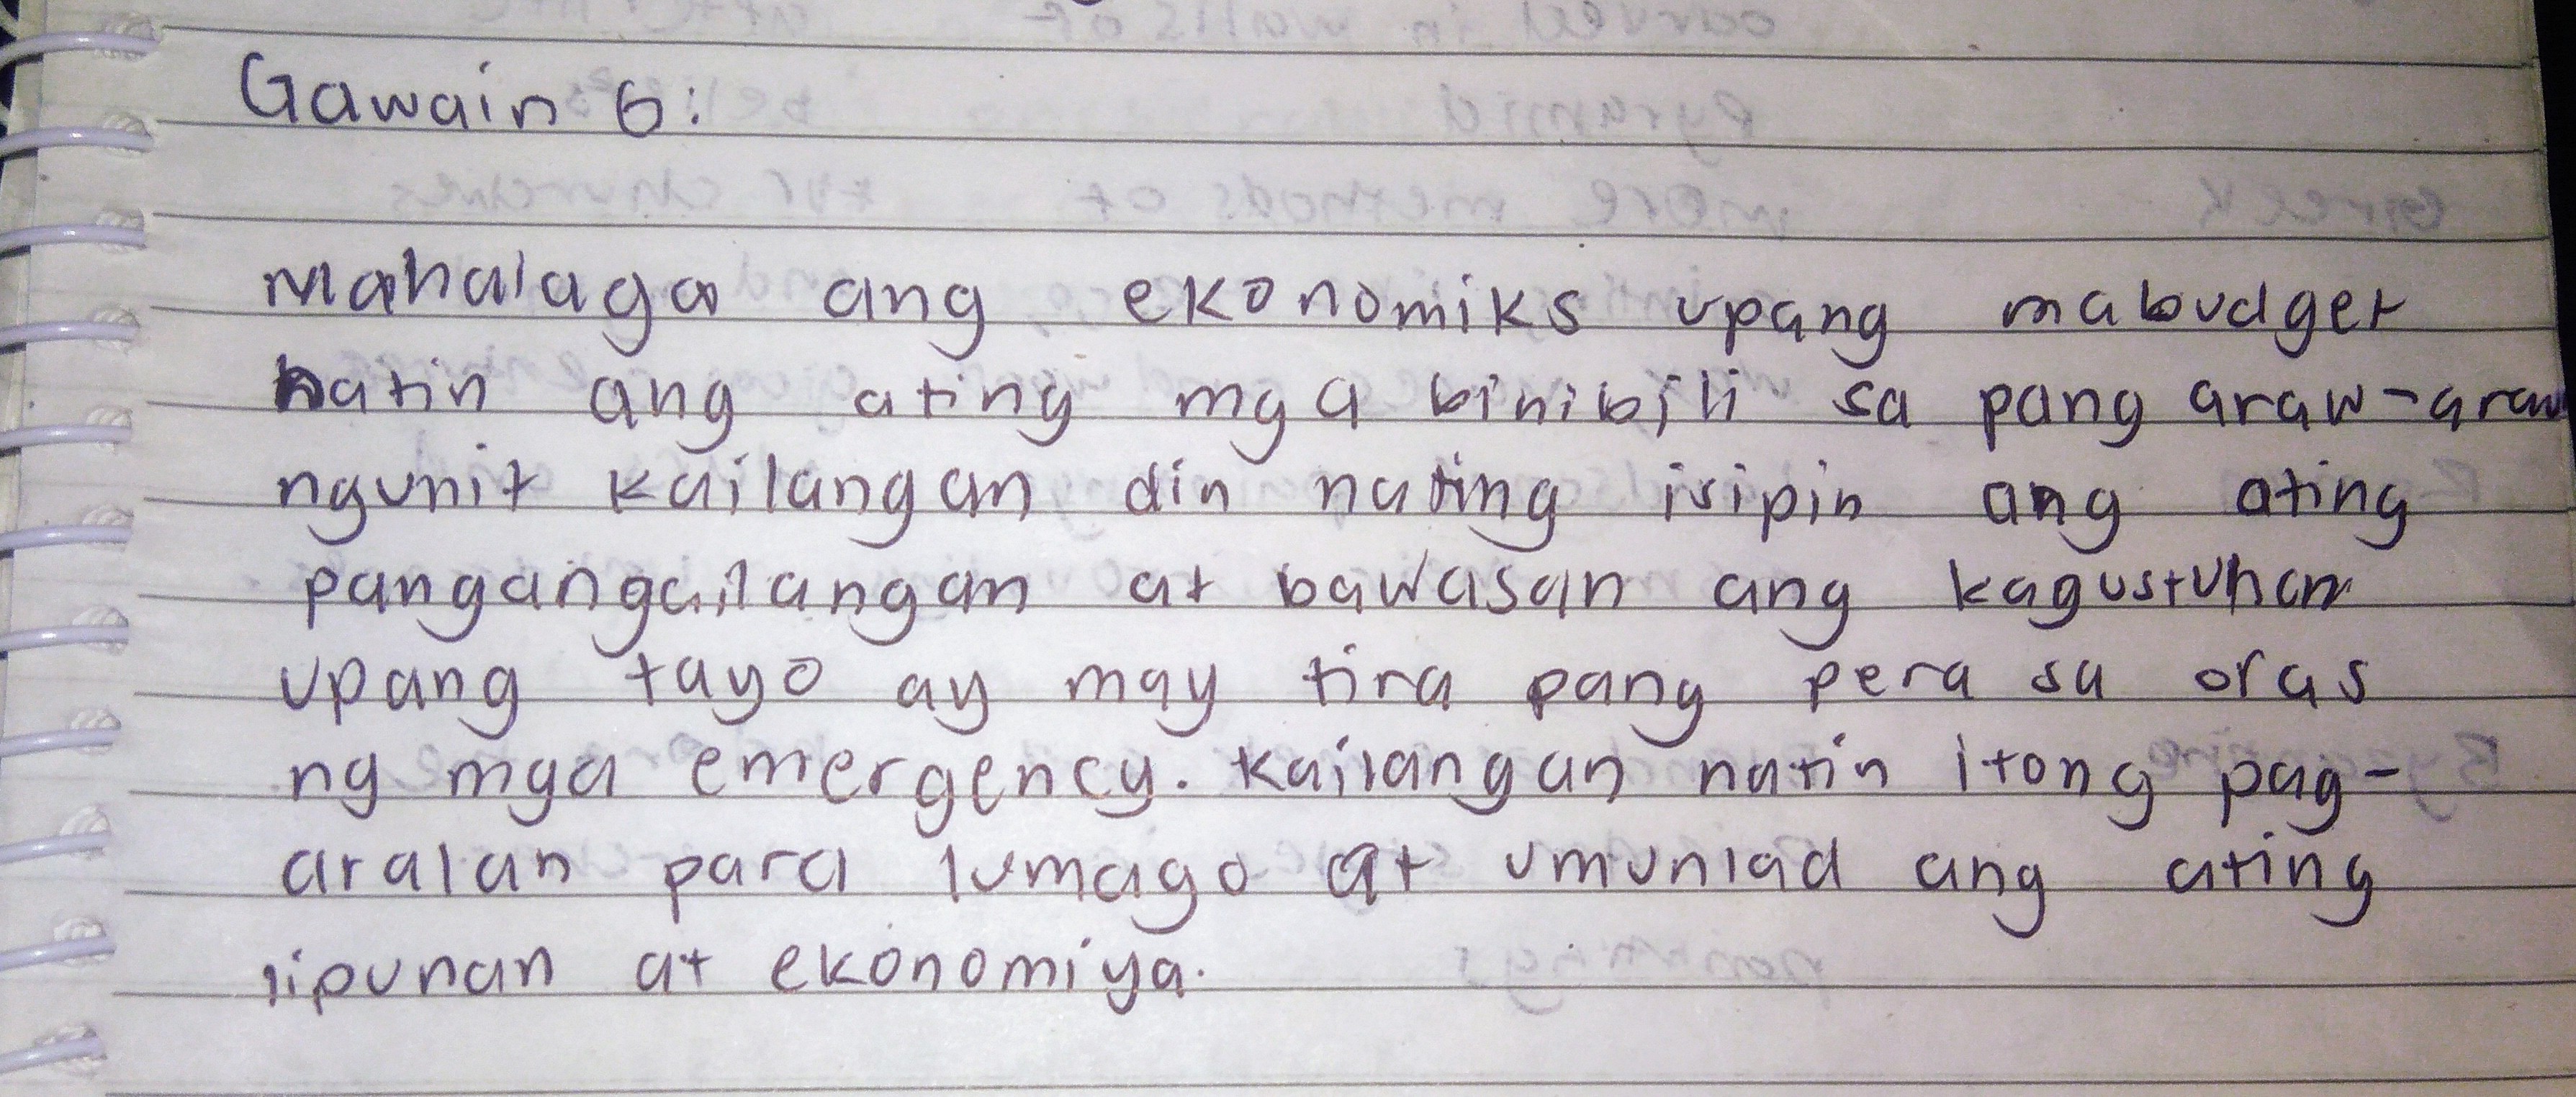 Gawain 6:
Mahalaga ang ekonomiks upang mabudget
natin ang ating mga binibili sa pang araw-araw
ngunit kailangan din nating isipin ang ating
pangangailangan at bawasan ang kagustuhan
upang tayo ay may tira pang pera sa oras
ng mga emergency. Kailangan natin itong pag-
aralan para lumago at umunlad ang ating
lipunan at ekonomiya.